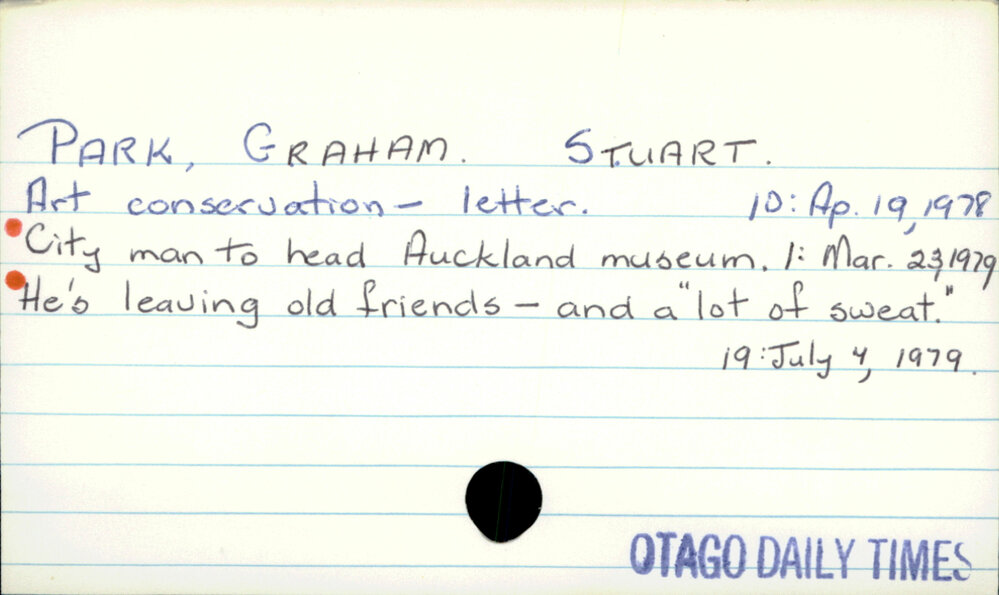 PARK, GRAHAM. STUART.
Art conservation - letter. 10: Ap. 19, 1978
City man to head Auckland museum. 1: Mar. 23, 1979
He's leaving old friends - and a "lot of sweat."
19: July 4, 1979.
OTAGO DAILY TIMES